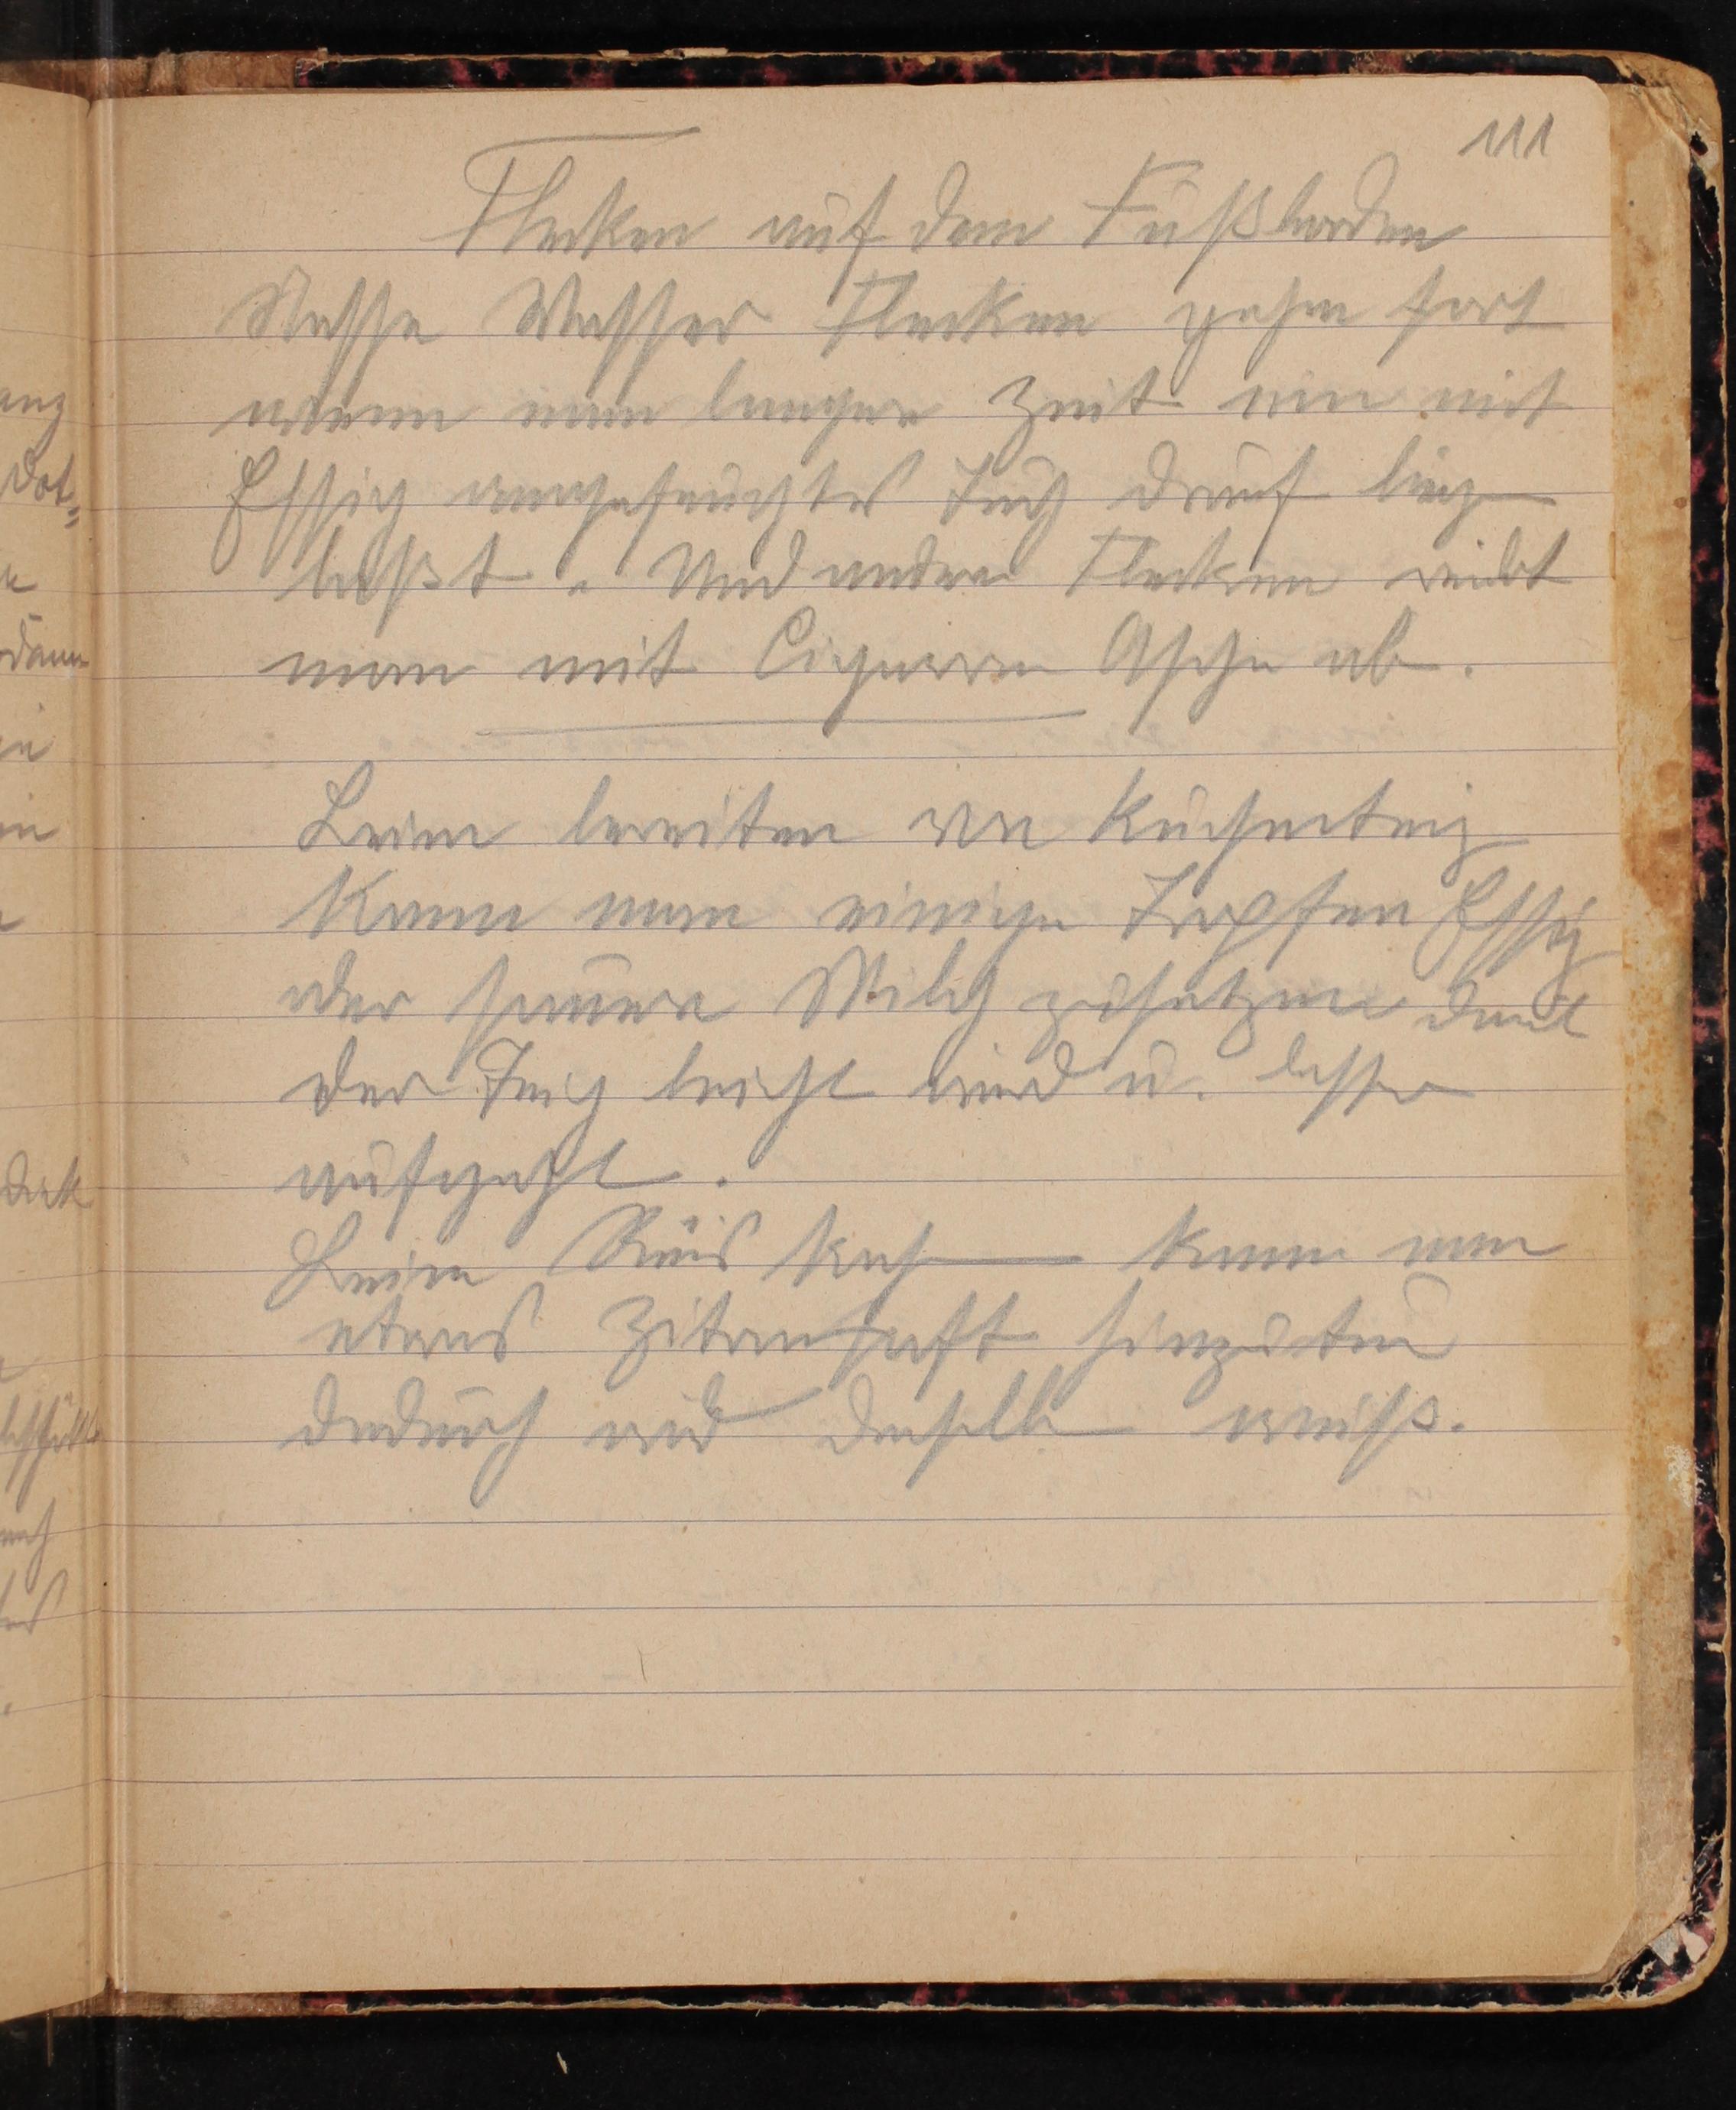 111
Flecken auf dem Fußboden
Nasse Wasser Flecken gehen fort
wenn man langere Zeit ein mit
Essig angefeuchtes Tuch drauf lieg
laßt. Und andere Flecken reibt
man mit Cigarren Asche ab.
Beim bereiten von Kuchenteig
kann man einige Tropfen Essig
oder sauere Milch zusetzen damit
der Teig leicht wird u. besser
aufgeht.
Beim Reis kochen kann man
etwas Zitronsaft hinzutun
dadurch wird derselbe weiß.